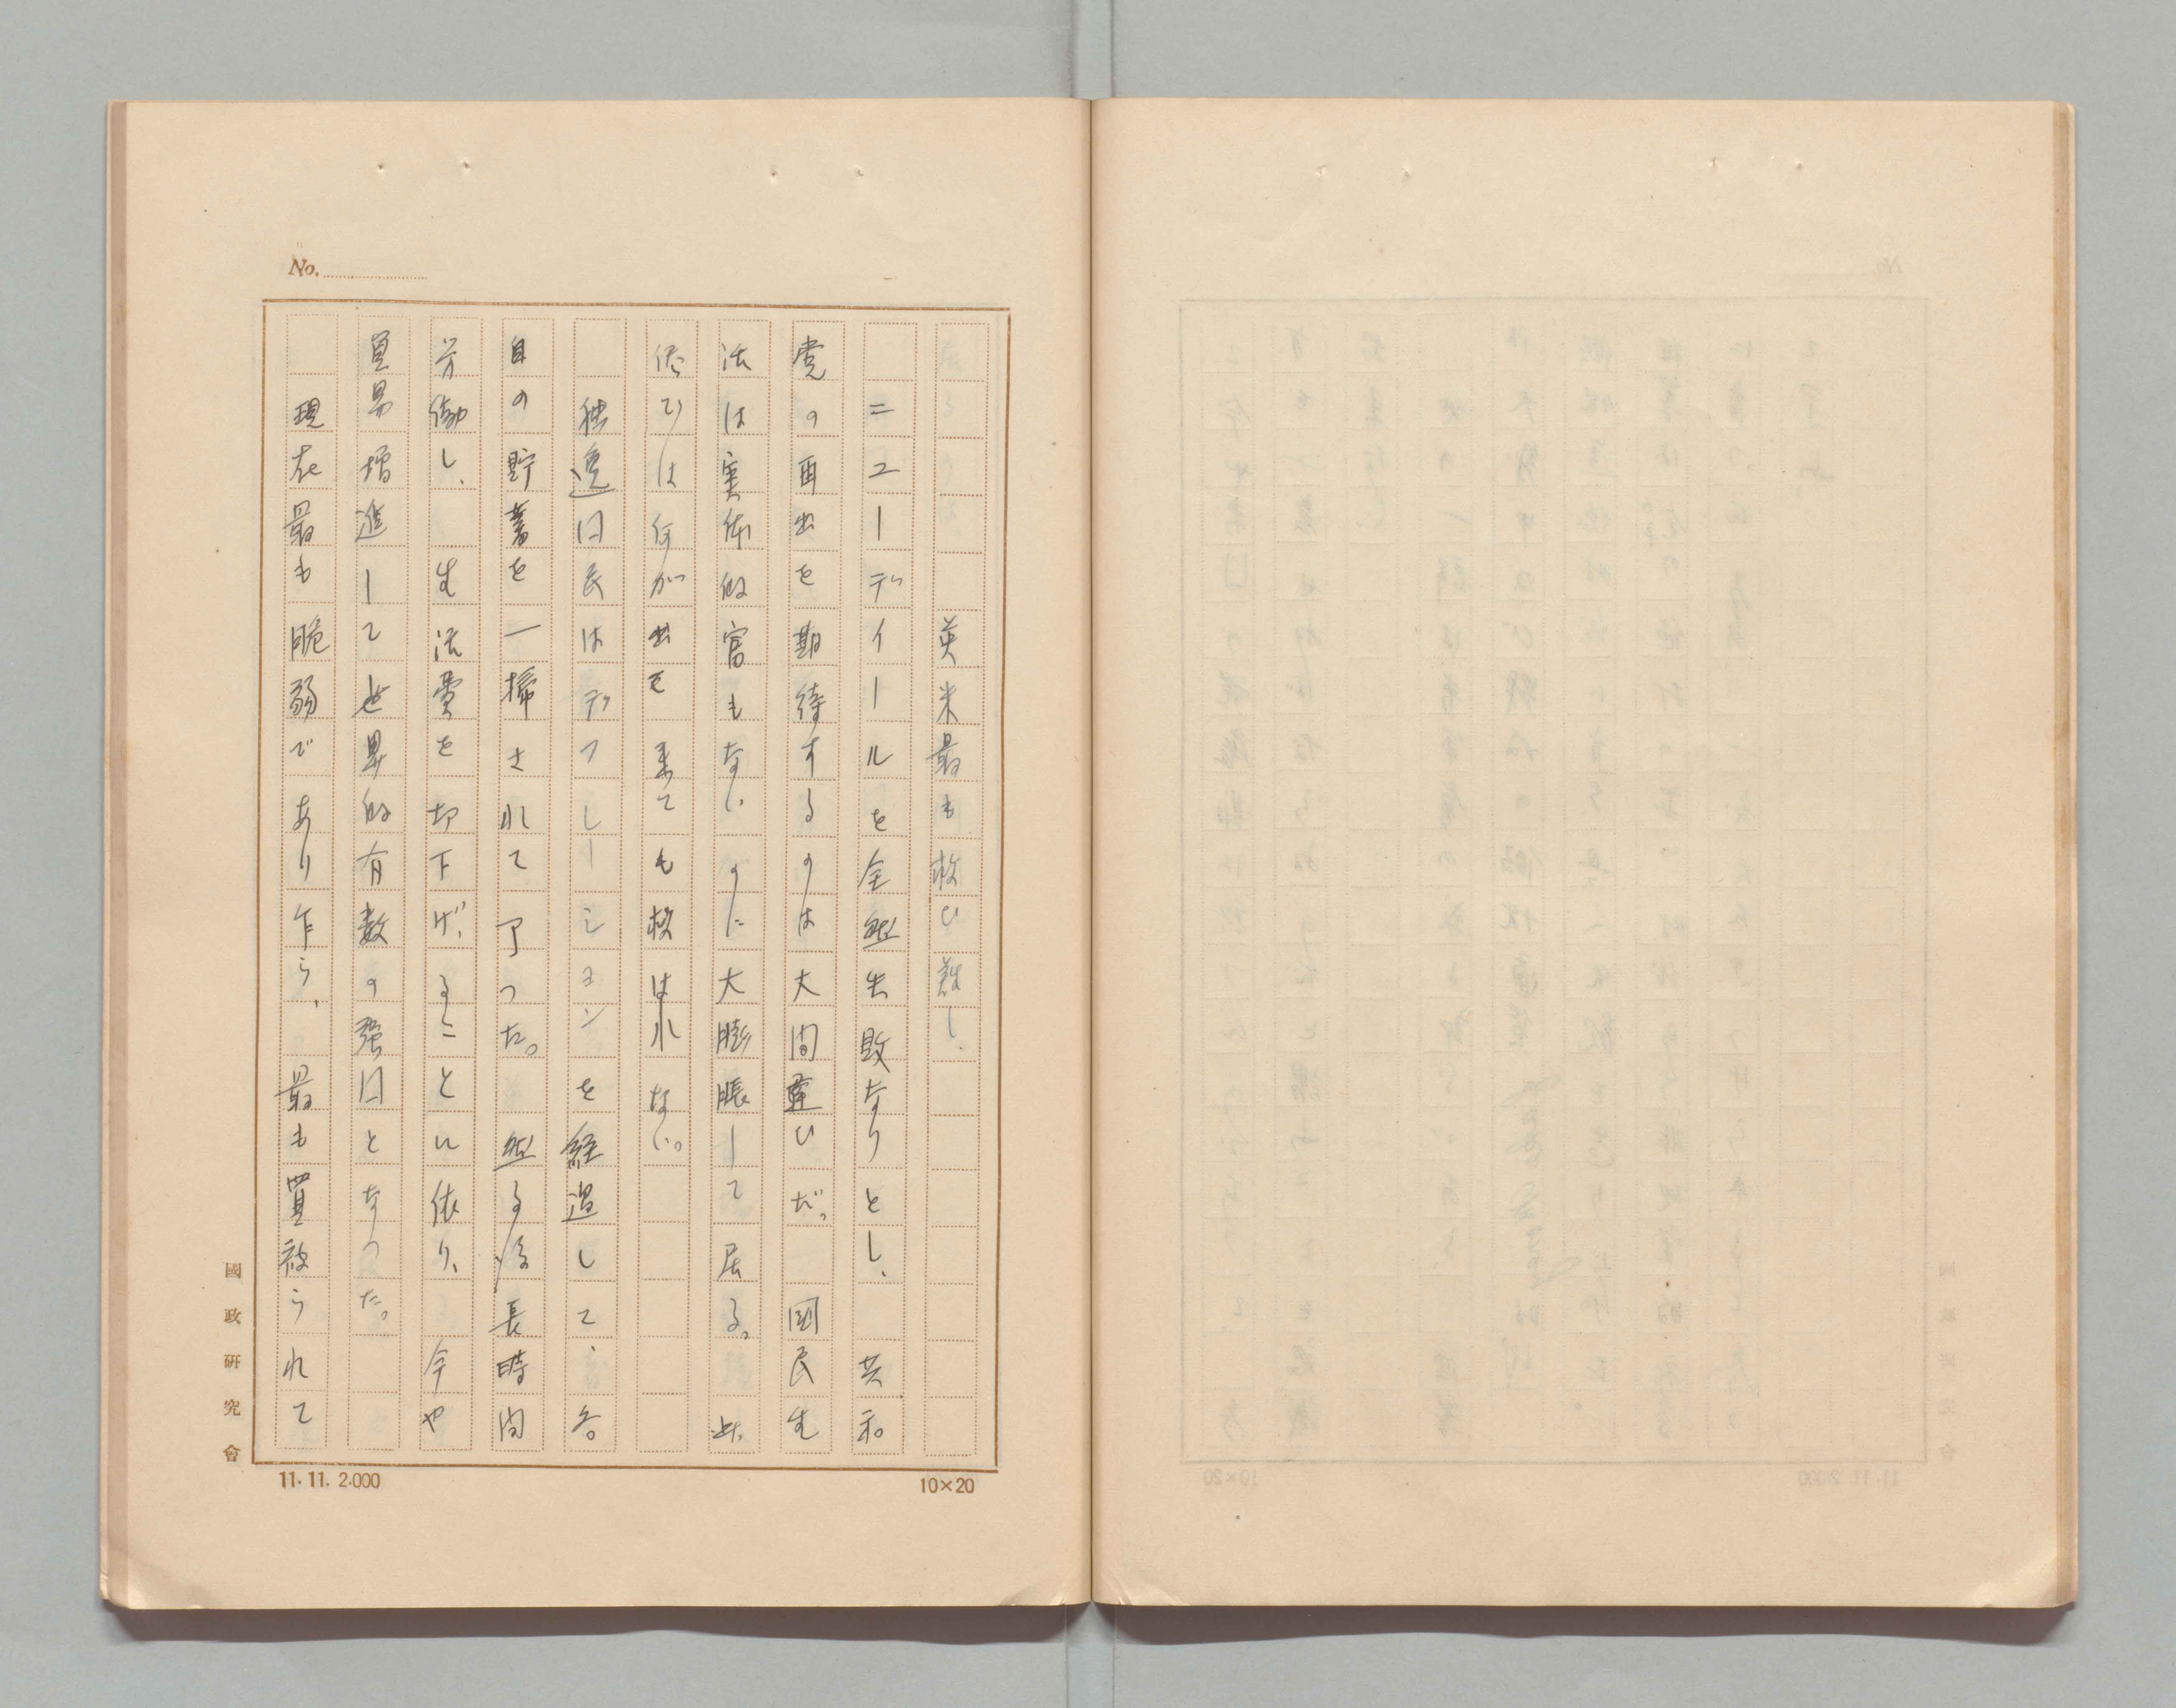 No.
英米最も救ひ難し、
ニユーデイールを全然失敗なりとし、共和
党の再出を期待するのは大間違ひだ。国民生
活は実体的富もないのに大膨脹して居る。此
侭では何が出て来ても救はれない。
独逸国民はデフレーションを経過して、各
自の貯蓄を一掃されて了つた。然る後長時間
労働し、生活費を切下げることに依り、今や
貿易増進して世界的有数の強国となつた。
現在最も脆弱であり乍ら、最も買被られて
國政研究會
11.11.2.000
10×20